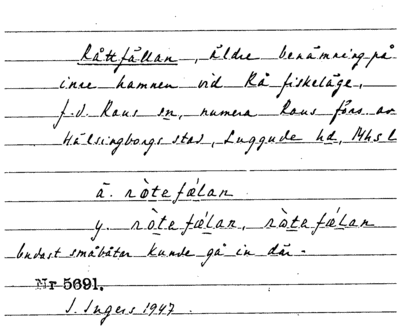 Råttfällan, äldre benämning på
inre hamnen vid Rå fiskeläge,
f.d. Raus sn, numera Raus förs. av
Hälsingborgs stad, Luggude hd, Mhsl
ä. ròtefǽlan
y. ròtefǽlan, ràtefǽlan
Endast småbåtar kunde gå in där.
Nr 5691.
I. Ingers 1947.